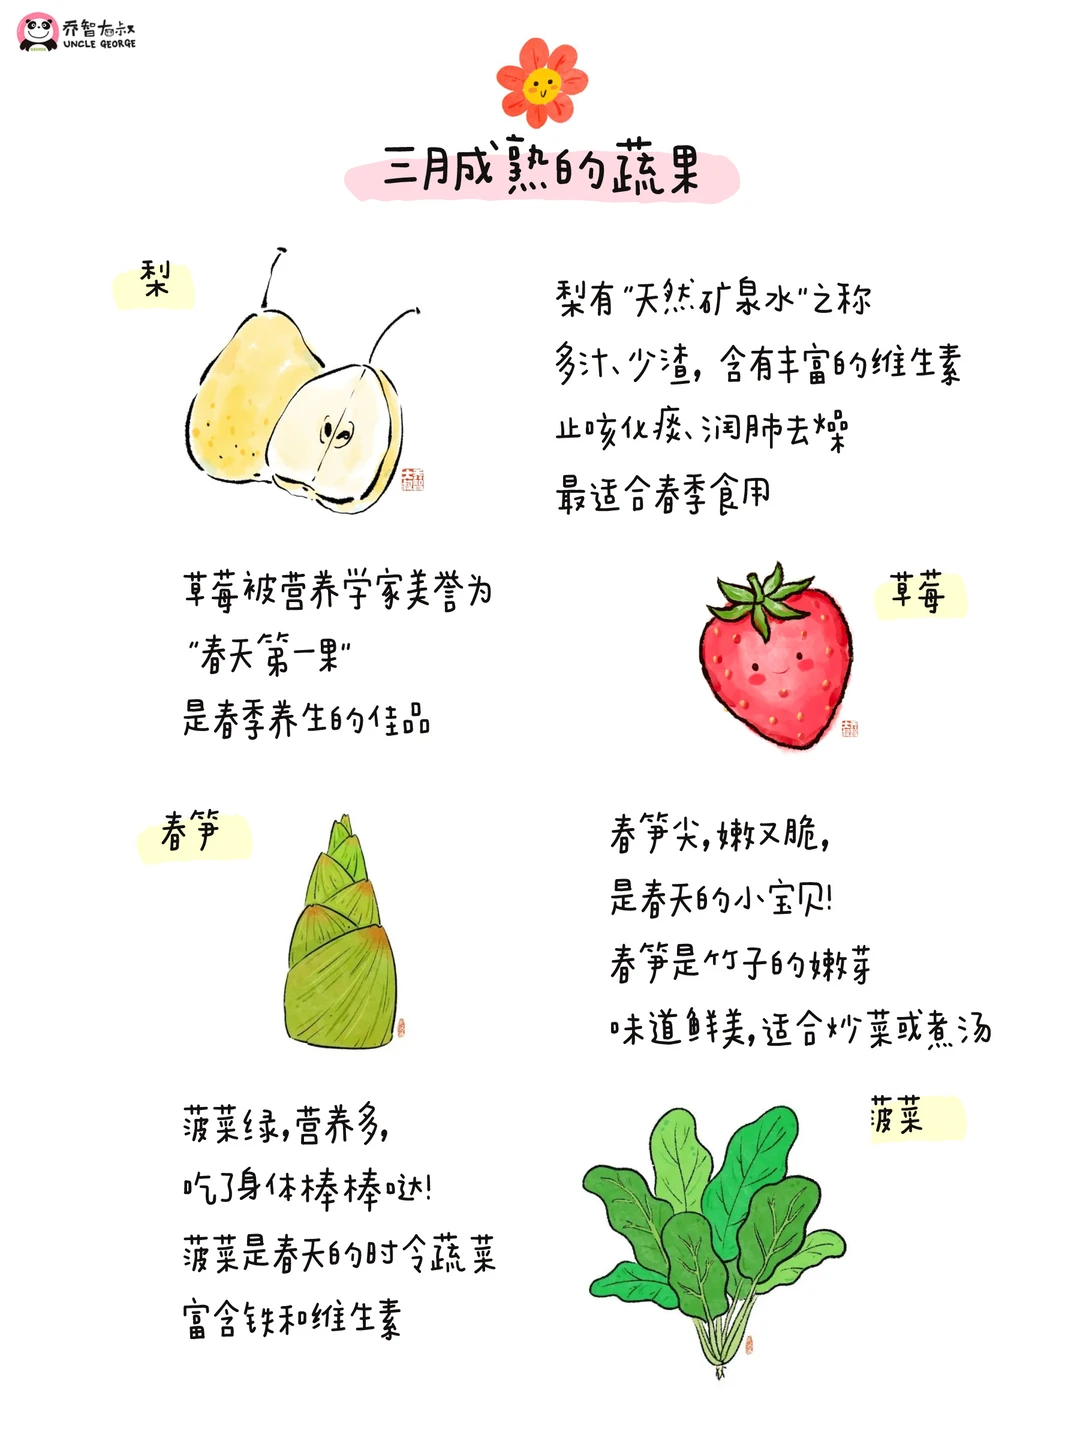 乔智大叔
UNCLE GEORGE
三月成熟的蔬果
梨
梨有"天然矿泉水"之称
多汁、少渣，含有丰富的维生素
止咳化痰、润肺去燥
最适合春季食用
草莓被营养学家美誉为
"春天第一果"
是春季养生的佳品
草莓
春笋
春笋尖，嫩又脆，
是春天的小宝贝！
春笋是竹子的嫩芽
味道鲜美，适合炒菜或煮汤
菠菜绿，营养多，
吃了身体棒棒哒！
菠菜是春天的时令蔬菜
富含铁和维生素
菠菜